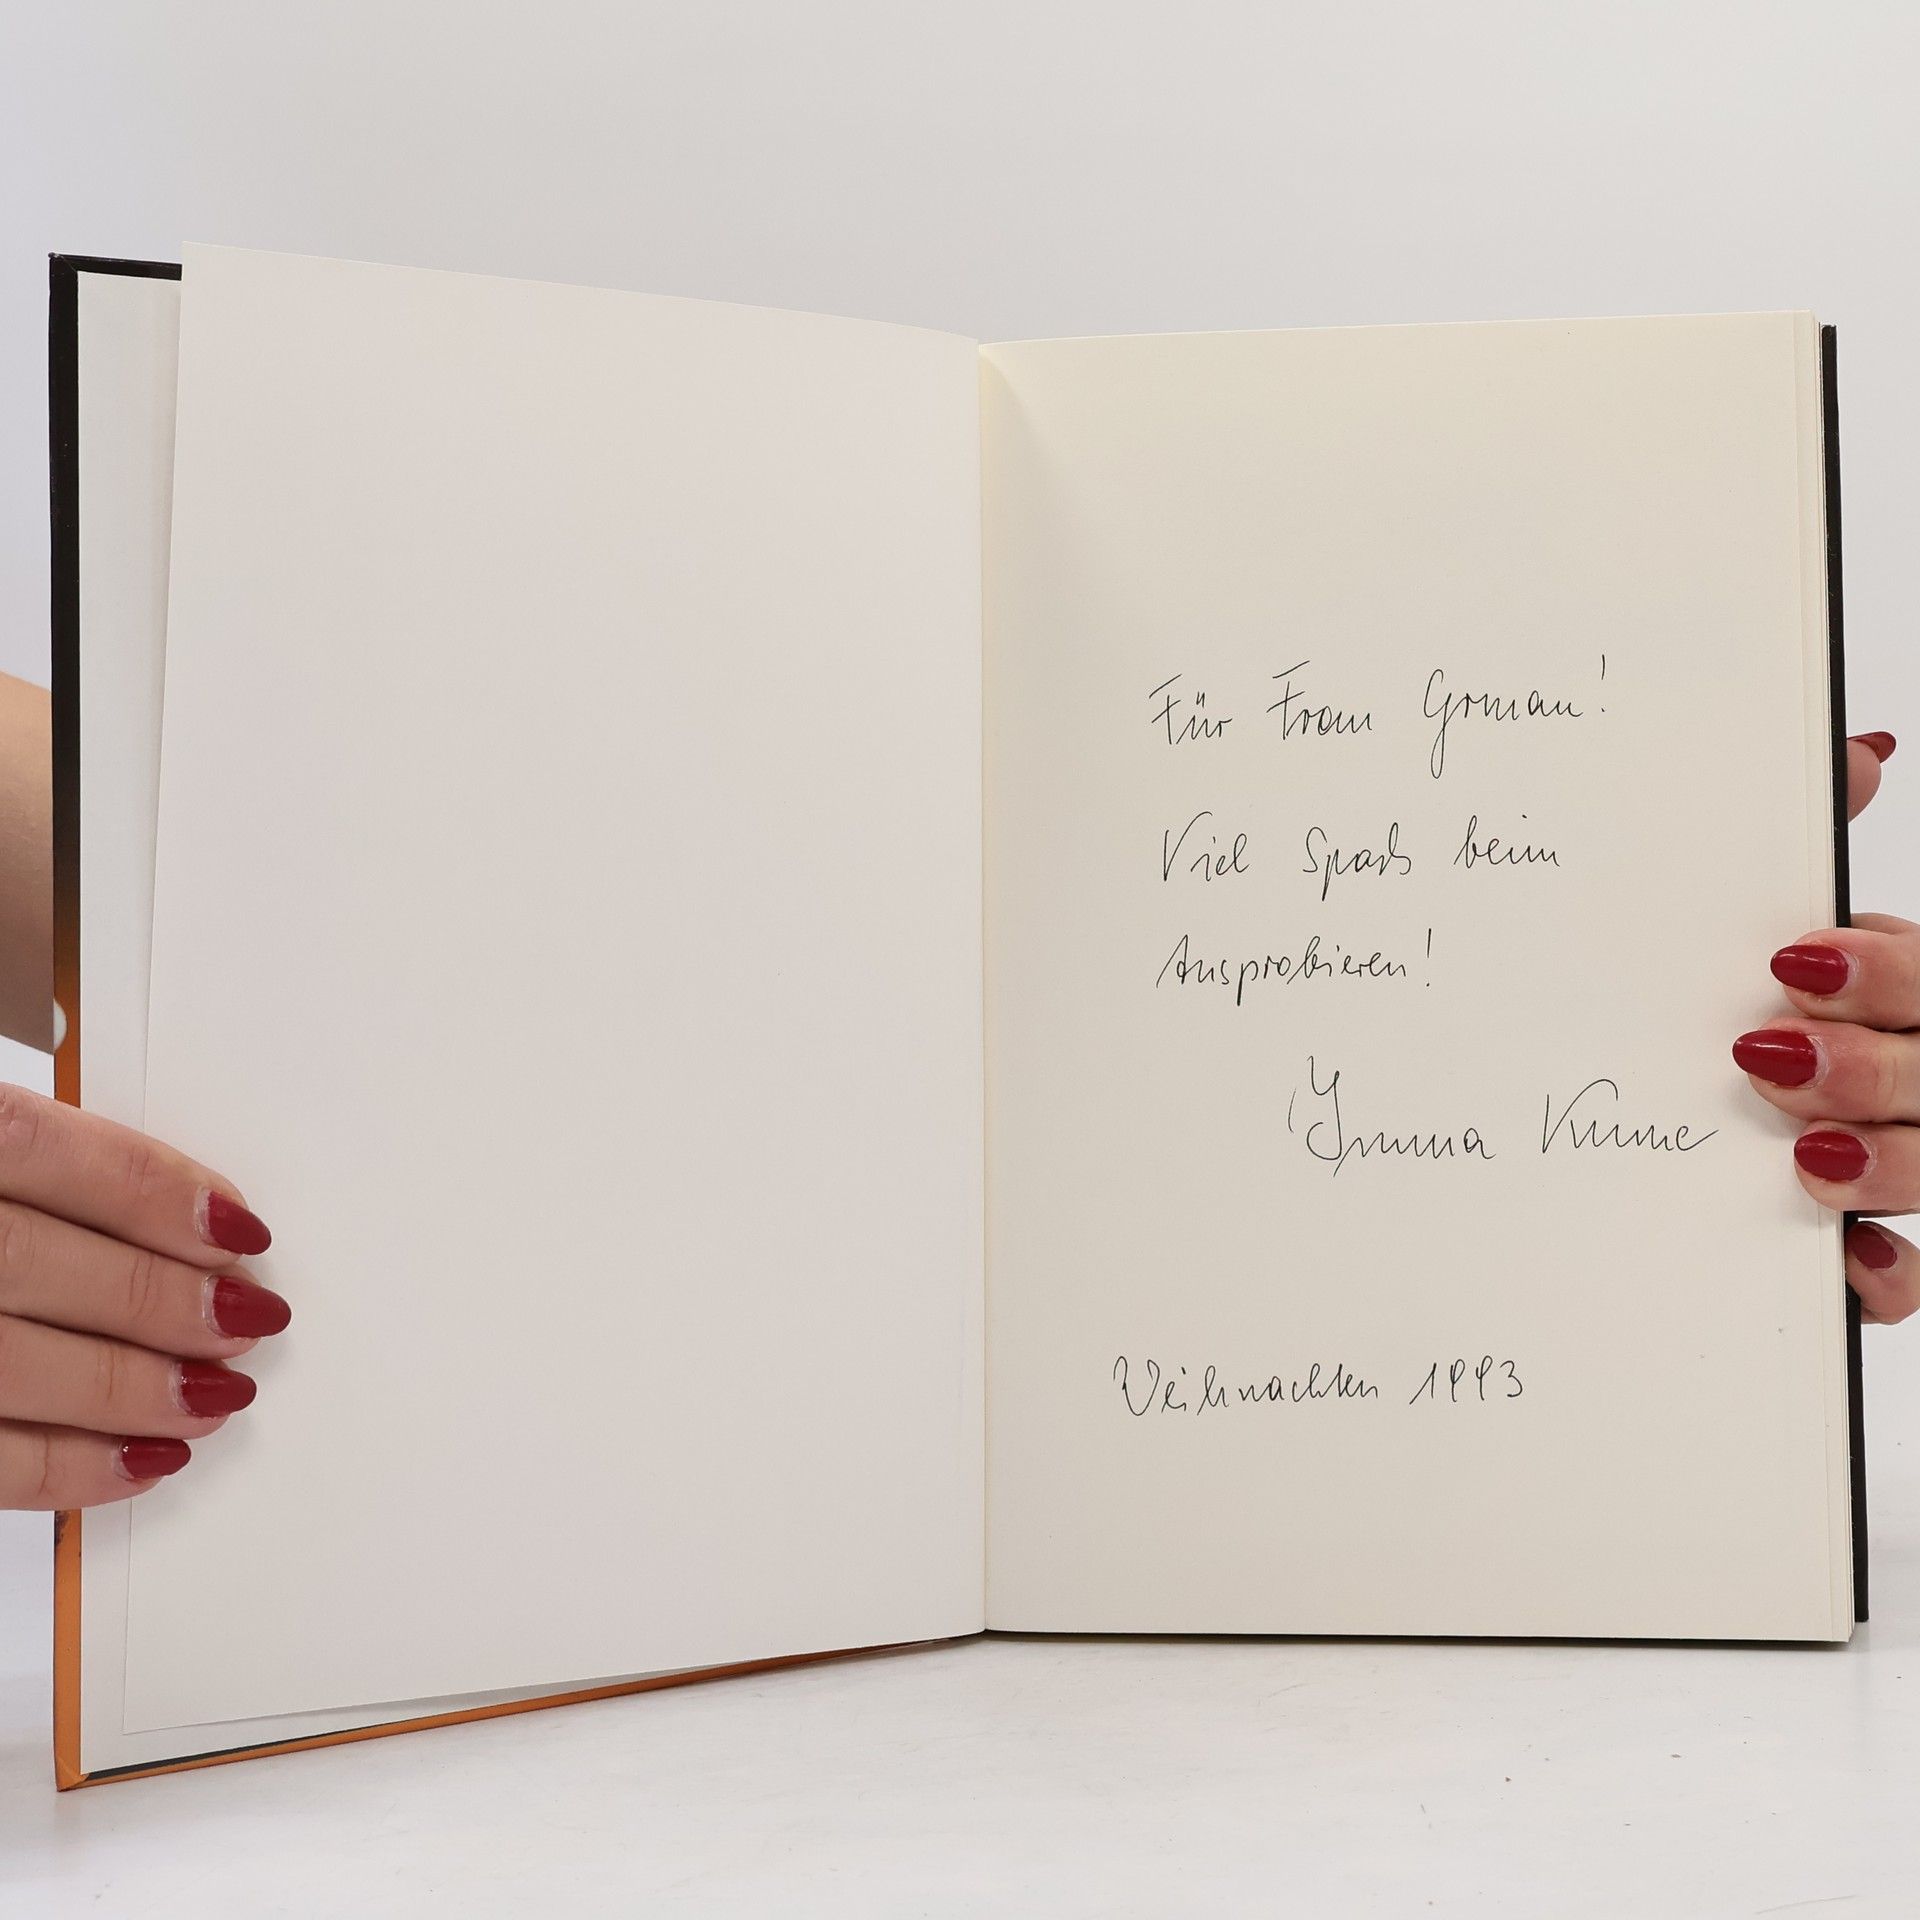 Für Frau Grman!
Viel Spaß beim
Ausprobieren!
Imma
Weihnachten 1993